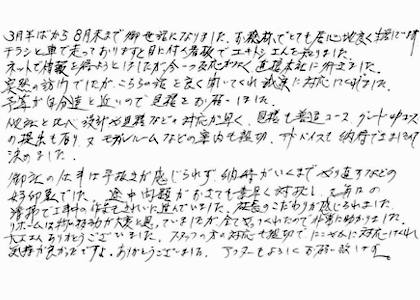 3月半ばから8月末まで御世話になりました。お蔭様でとても居心地良く生活しています
チラシと車で走っておりますと目に付く看板でエキトシエさんを知りました。
ネットで情報を得ようとはしたが今一つ反応なく直接本社に行きました。
突然の訪問でしたがこちらの話を良く聞いてくれ誠実に対応してくれました。
予算が自分達と近いので見積をお願いしました。
他社と比べ設計や見積などの対応が早く、見積も普通コース、グレードupコース
の提示も有り、又モデルルームなどの案内も親切、アドバイスも納得できましたので
決めました。
御社の仕事は手抜きが感じられず納得がいくまでやり直すなどの
好印象でした。途中問題がおきても素早く対処し、又毎日の
清掃で工事中の住宅もきれいに進んでいました。社長のこだわりが感じられました。
リホームは片付けるのが大変と思っていましたが全てやってくれたので非常に助かりました。
大工さんありがとうございました。スタッフの方の対応も親切で、にこやかに対応してくれ
気持が良かったですよ。ありがとうございました。アフターもよろしくお願い致します。